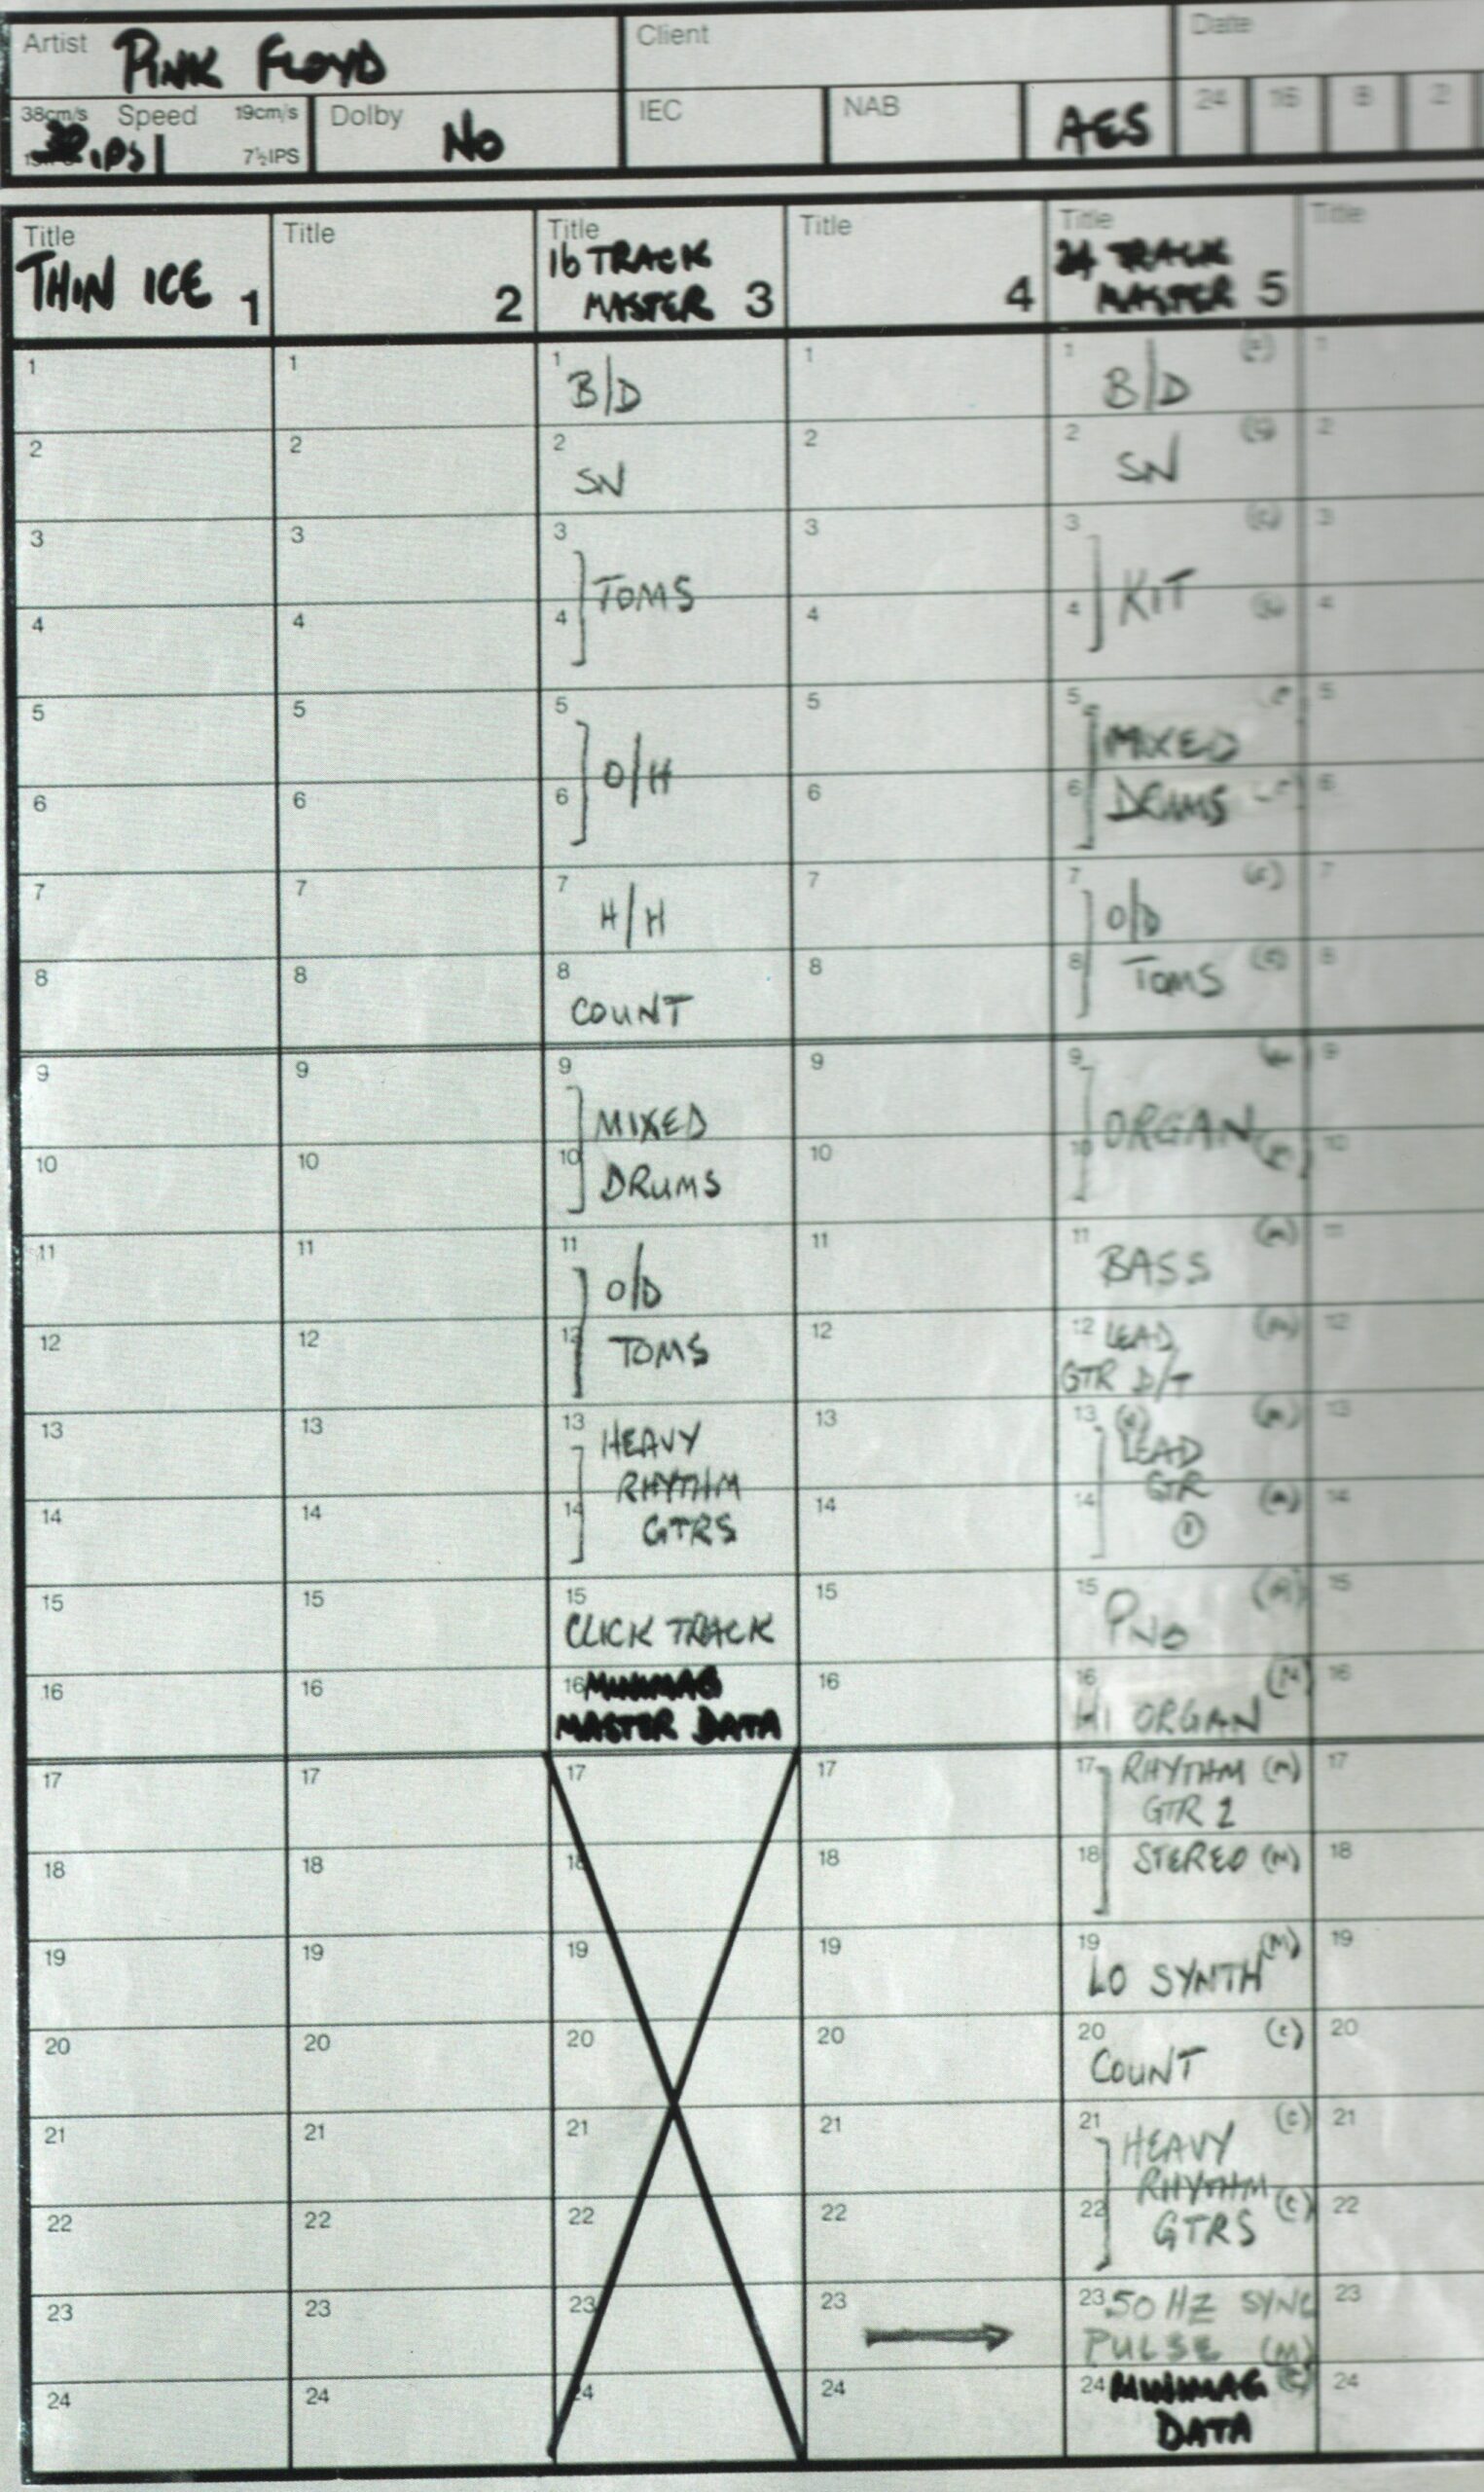 Artist PINK FLOYD Client Date
38cm/s Speed 19cm/s Dolby NO IEC NAB AES 24 16 8 2
30 ips 7½IPS
Title Title Title Title Title Title
THIN ICE 1 2 16 TRACK MASTER 3 4 24 TRACK MASTER 5
1 1 1 B/D 1 1 B/D 1
2 2 2 SN 2 2 SN 2
3 3 3 TOMS 3 3 KIT 3
4 4 4 4 4 4
5 5 5 O/H 5 5 MIXED 5
6 6 6 6 6 DRUMS 6
7 7 7 H/H 7 7 O/D 7
8 8 8 COUNT 8 8 TOMS 8
9 9 9 MIXED 9 9 ORGAN 9
10 10 10 DRUMS 10 10 10
11 11 11 O/D 11 11 BASS 11
12 12 12 TOMS 12 12 LEAD GTR D/T 12
13 13 13 HEAVY RHYTHM 13 13 LEAD GTR 13
14 14 14 GTRS 14 14 ① 14
15 15 15 CLICK TRACK 15 15 PNO 15
16 16 16 MINIMAG MASTER DATA 16 16 HI ORGAN 16
17 17 17 17 17 RHYTHM (M) GTR 2 17
18 18 18 18 18 STEREO (M) 18
19 19 19 19 19 LO SYNTH (M) 19
20 20 20 20 20 COUNT (C) 20
21 21 21 21 21 HEAVY (C) RHYTHM 21
22 22 22 22 22 GTRS (C) 22
23 23 23 23 23 50 HZ SYNC PULSE (M) 23
24 24 24 24 24 MINIMAG DATA 24